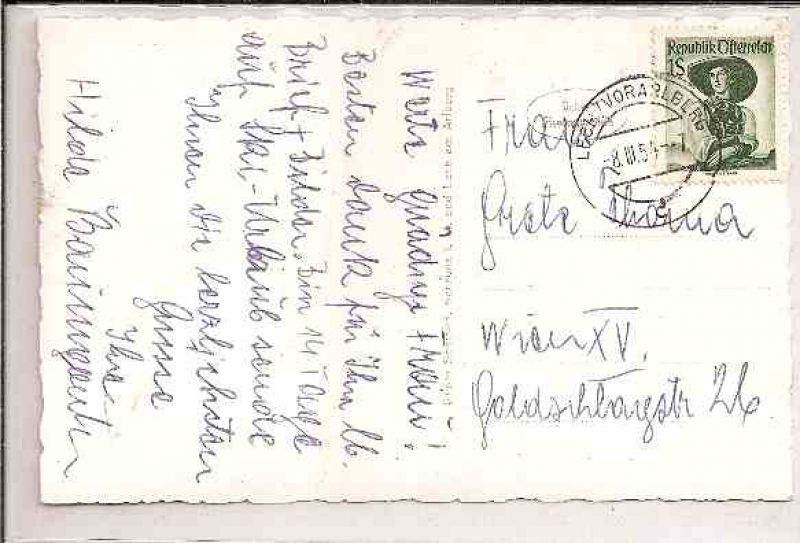 Werte gnädige Frau!
Besten Dank für Ihr lb.
Brief + Bilder. Bin 14 Tage
auf Ski-Urlaub sende
Ihnen die herzlichsten
Grüsse
Ihre
Hilde Baumgartner
Republik Österreich
1S
LECH VORARLBERG
-8.III.5
Frau
Grete Thoma
Wien XV.
Goldschlagstr 26
und Lech am Arlberg